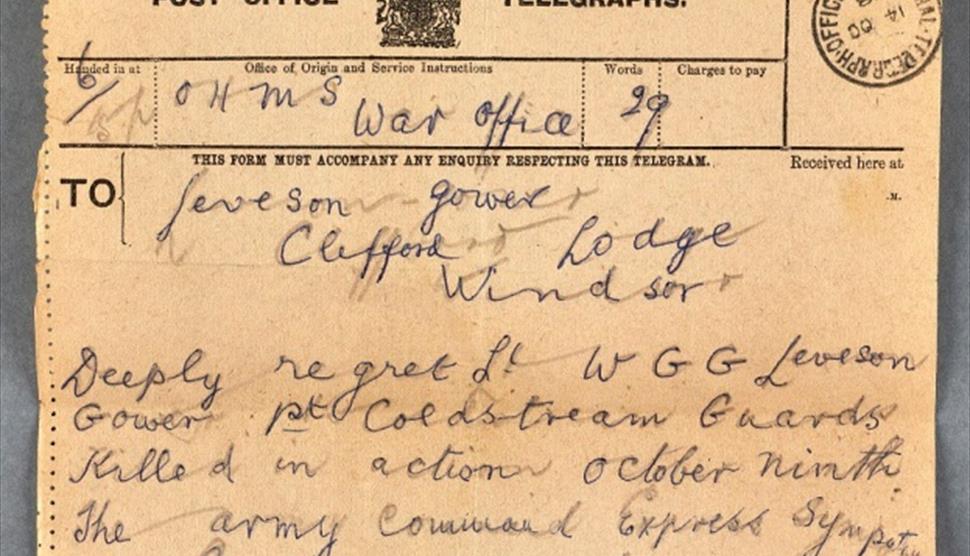 POST OFFICE TELEGRAPHS.
Handed in at
Office of Origin and Service Instructions
Words
Charges to pay
6/
OHMS War Office 29
THIS FORM MUST ACCOMPANY ANY ENQUIRY RESPECTING THIS TELEGRAM.
Received here at
TO
.M.
Leveson Gower
Clifford Lodge
Windsor
Deeply regret Lt W G G Leveson
Gower Coldstream Guards
Killed in action October Ninth
The army Command Express